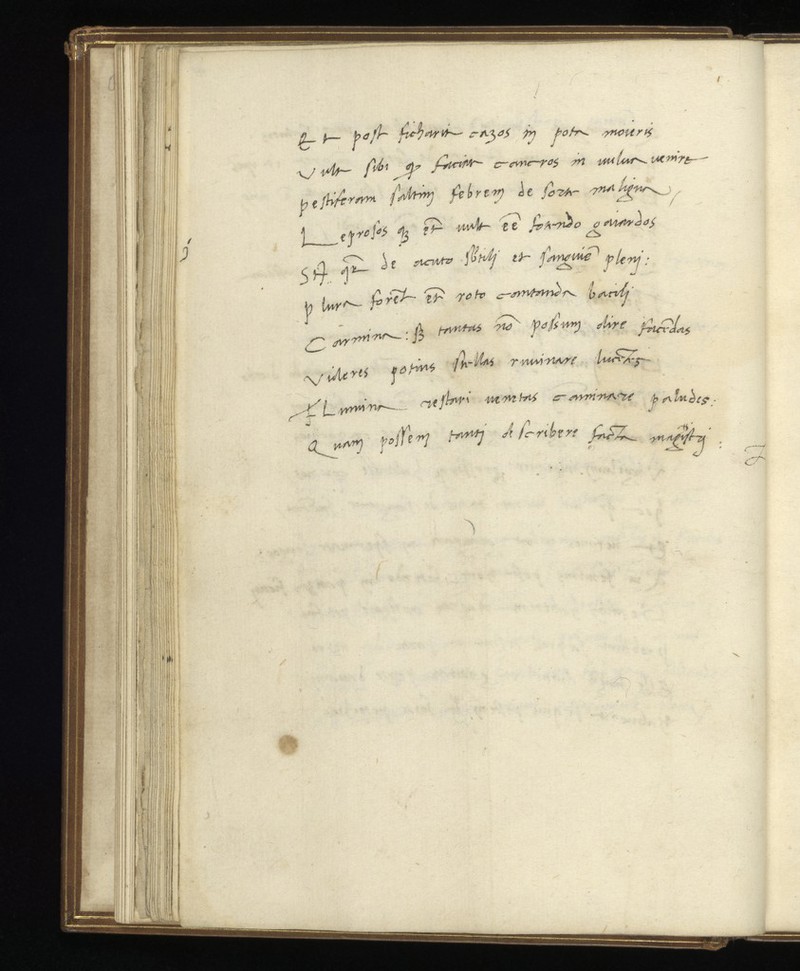 Et post ficharit cazos in pota moieris
Vult sibi qp faciat cancros in uulua uenire
pestiferam saltim febrem de sorte maligna
Leprosos qz et uult ee fotendo gaiardos
St qt de acuto sbtilj et sanguie plenj:
plura foret et roto cantanda bacilj
Carmina: sz tantas no possum dire facedas
Videres potius stellas ruuinare lucetes
Flumina restari uenetas caminare paludes:
Quam possem tantj describere facta magistrj: